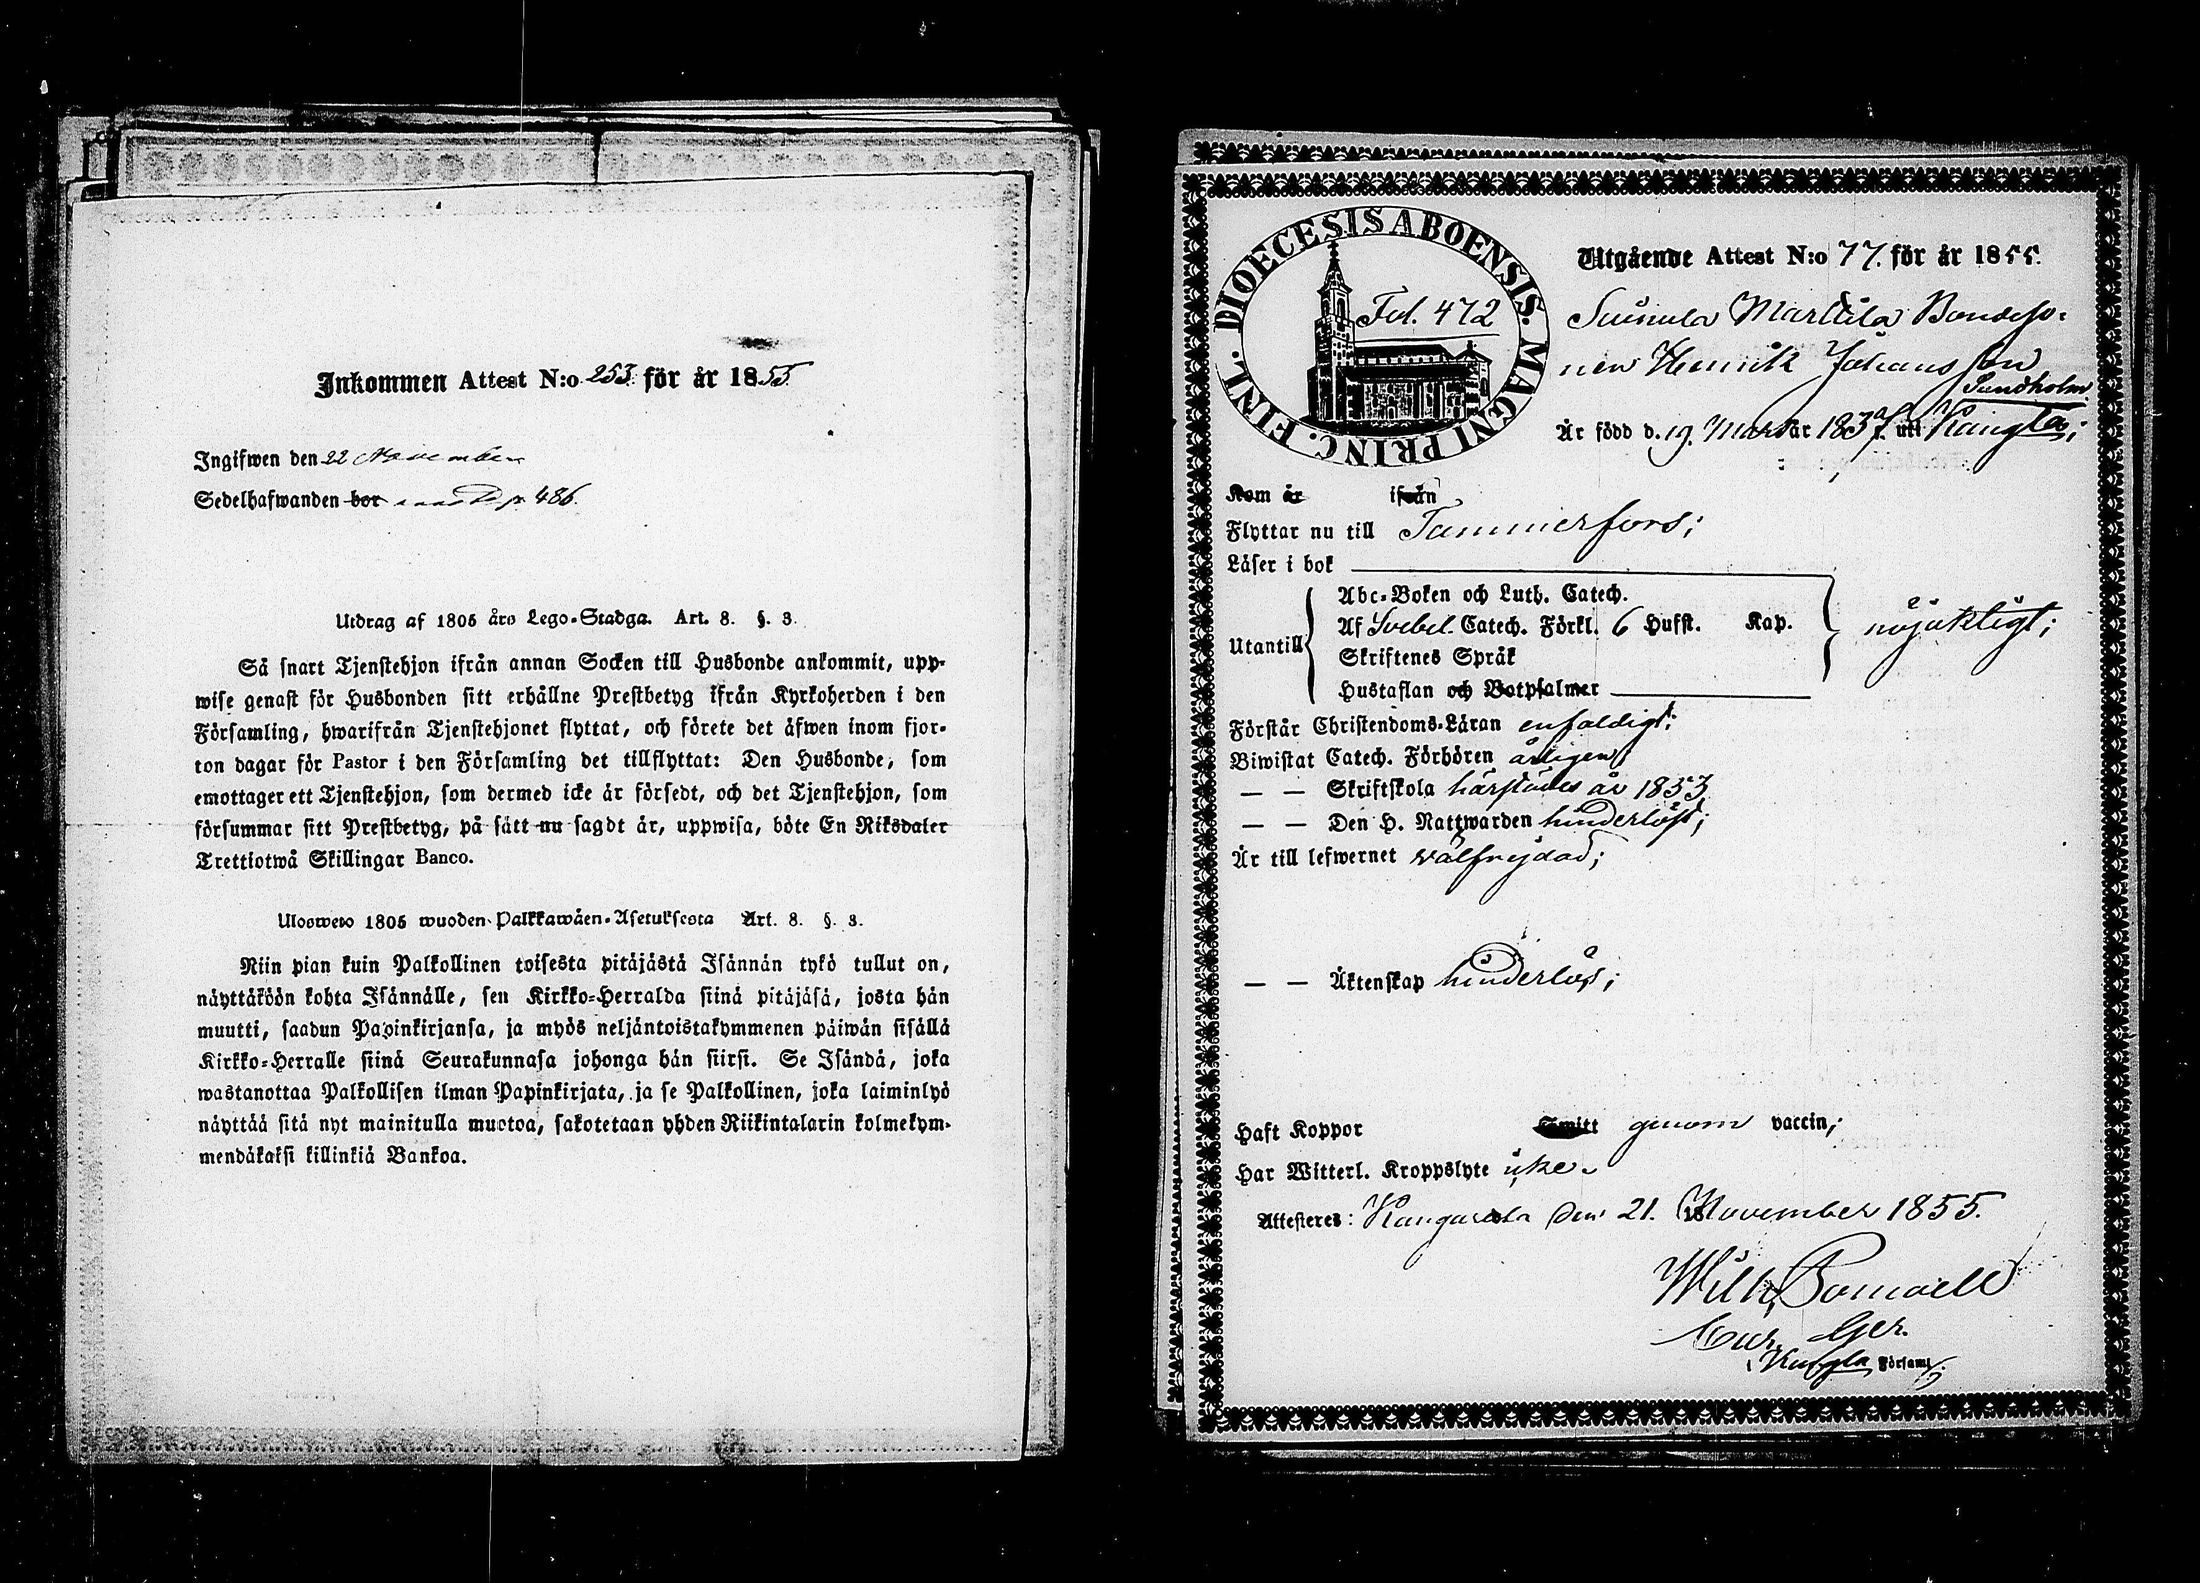 Inkommen Attest N:o 253. för år 1855
Ingifwen den 22 November
Sedelhafwanden bor 486.
Utdrag af 1805 års Lego-Stadga. Art. 8. §. 3.
Så snart Tjenstehjon ifrån annan Socken till Husbonde ankommit, upp-
wise genast för Husbonden sitt erhållne Prestbetyg ifrån Kyrkoherden i den
Församling, hwarifrån Tjenstehjonet flyttat, och förete det äfwen inom fjor-
ton dagar för Pastor i den Församling det tillflyttat: Den Husbonde, som
emottager ett Tjenstehjon, som dermed icke är försedt, och det Tjenstehjon, som
försummar sitt Prestbetyg, på sätt nu sagdt är, uppwisa, böte En Riksdaler
Trettiotwå Skillingar Banco.
Ulosweto 1805 wuoden Palkkawäen-Asetuksesta Art. 8. §. 3.
Niin pian kuin Palkollinen toisesta pitäjästä Isännän tykö tullut on,
näyttäköön kohta Isännälle, sen Kirkko-Herralda siinä pitäjäsä, josta hän
muutti, saadun Papinkirjansa, ja myös neljäntoistakymmenen päiwän sisällä
Kirkko-Herralle siinä Seurakunnasa johonga hän siirsi. Se Isändä, joka
wastanottaa Palkollisen ilman Papinkirjata, ja se Palkollinen, joka laiminlyö
näyttää sitä nyt mainitulla muotoa, sakotetaan yhden Riikintalarin kolmekym-
mendäkaksi killinkiä Bankoa.
DIOECESIS ABOENSIS. MAGNI PRINC. FINL.
Fol. 472
Utgående Attest N:o 77. för år 1855.
Suinula Marttila Bondeso-
nen Henrik Johansson
Sundholm
Är född d. 19. Mars år 1837. uti Kangla;
Kom år ifrån
Flyttar nu till Tammerfors;
Läser i bok
Abc-Boken och Luth. Catech.
Utantill Af Svebel. Catech. Förkl. 6 Hufst. Kap. nöjaktigt;
Skriftenes Språk
Hustaflan och Botpsalmer
Förstår Christendoms-Läran enfaldigt;
Biwistat Catech. Förhören årligen;
— — Skriftskola härstädes år 1853
— — Den H. Nattwarden hinderlöst;
Är till lefwernet wälfrejdad;
— — Äktenskap hinderlös;
Haft Koppor Smitt genom vaccin;
Har Witterl. Kroppslyte icke.
Attesteres: Kangasala den 21. November 1855.
Wilh.
Cur. Ger.
i Kangla Församl.